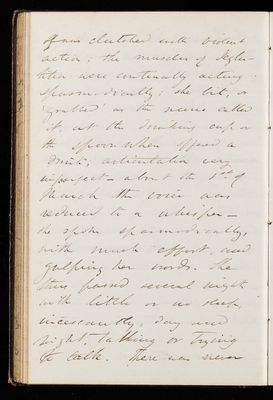 was clutched with violent
action; the muscles of deglu-
tition were continually acting
spasmodically; she bit, or
'grabbed' as the nurse called
it, at the drinking cup or
the spoon when offered a
drink; articulation very
imperfect – about the 1st of
March the voice was
reduced to a whisper –
she spoke spasmodically,
with much effort, and
gulping her words. She
thus passed several nights
with little or no sleep,
incessantly, day and
night, talking or trying
to talk. There was never